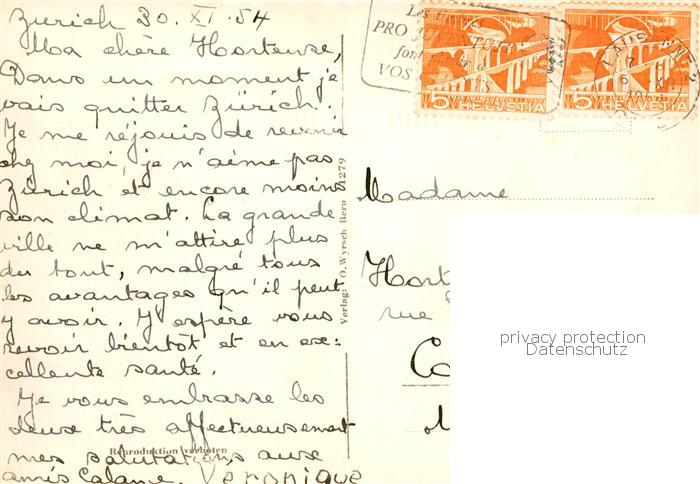 Zurich 30. XI. 54
Ma chère Hortense,
Dans un moment je
vais quitter Zürich.
Je me réjouis de revenir
chez moi, je n'aime pas
Zürich et encore moins
son climat. La grande
ville ne m'attire plus
du tout, malgré tous
les avantages qu'il peut
y avoir. J'espère vous
revoir bientôt et en ex=
cellente santé.
Je vous embrasse les
deux très affectueusement
mes salutations aux
amis Calame. Veronique
Reproduktion verboten
Verlag: O. Wyrsch Bern 1279
Les timbres
PRO
font
VOS
5 HELVETIA
5 HELVETIA
LAUSANNE
Madame
Horte
rue
Co
privacy protection
Datenschutz